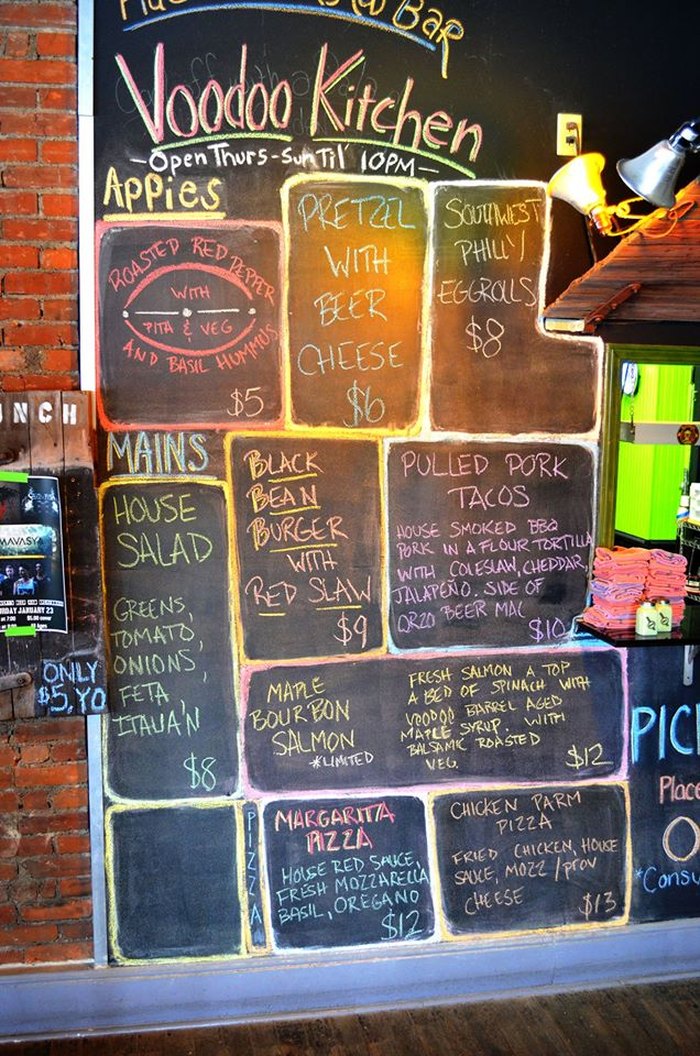 BAR
Voodoo Kitchen
-Open Thurs-Sun Til' 10PM-
Appies
ROASTED RED PEPPER
WITH
PITA & VEG
AND BASIL HUMMUS
$5
PRETZEL
WITH
BEER
CHEESE
$6
SOUTHWEST
PHILLY
EGGROLLS
$8
MAINS
HOUSE
SALAD
GREENS,
TOMATO,
ONIONS,
FETA,
ITALIA'N
$8
BLACK
BEAN
BURGER
WITH
RED SLAW
$9
PULLED PORK
TACOS
HOUSE SMOKED BBQ
PORK IN A FLOUR TORTILLA
WITH COLESLAW, CHEDDAR,
JALAPEÑO. SIDE OF
ORZO BEER MAC
$10
MAPLE
BOURBON
SALMON
*LIMITED
FRESH SALMON A TOP
A BED OF SPINACH WITH
VOODOO BARREL AGED
MAPLE SYRUP. WITH
BALSAMIC ROASTED
VEG.
$12
PIZZA
MARGARITTA
PIZZA
HOUSE RED SAUCE,
FRESH MOZZARELLA
BASIL, OREGANO
$12
CHICKEN PARM
PIZZA
FRIED CHICKEN, HOUSE
SAUCE, MOZZ/PROV
CHEESE
$13
UNCH
MAVASY
URDAY JANUARY 23
ONLY
$5, YO
PIC
Place
O
*Consu